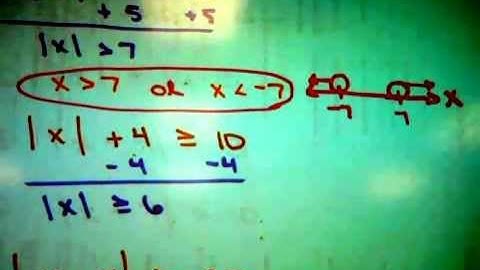 + 5 +5
|x| > 7
x > 7 or x < -7
-7 7 x
|x| + 4 ≥ 10
- 4 -4
|x| ≥ 6